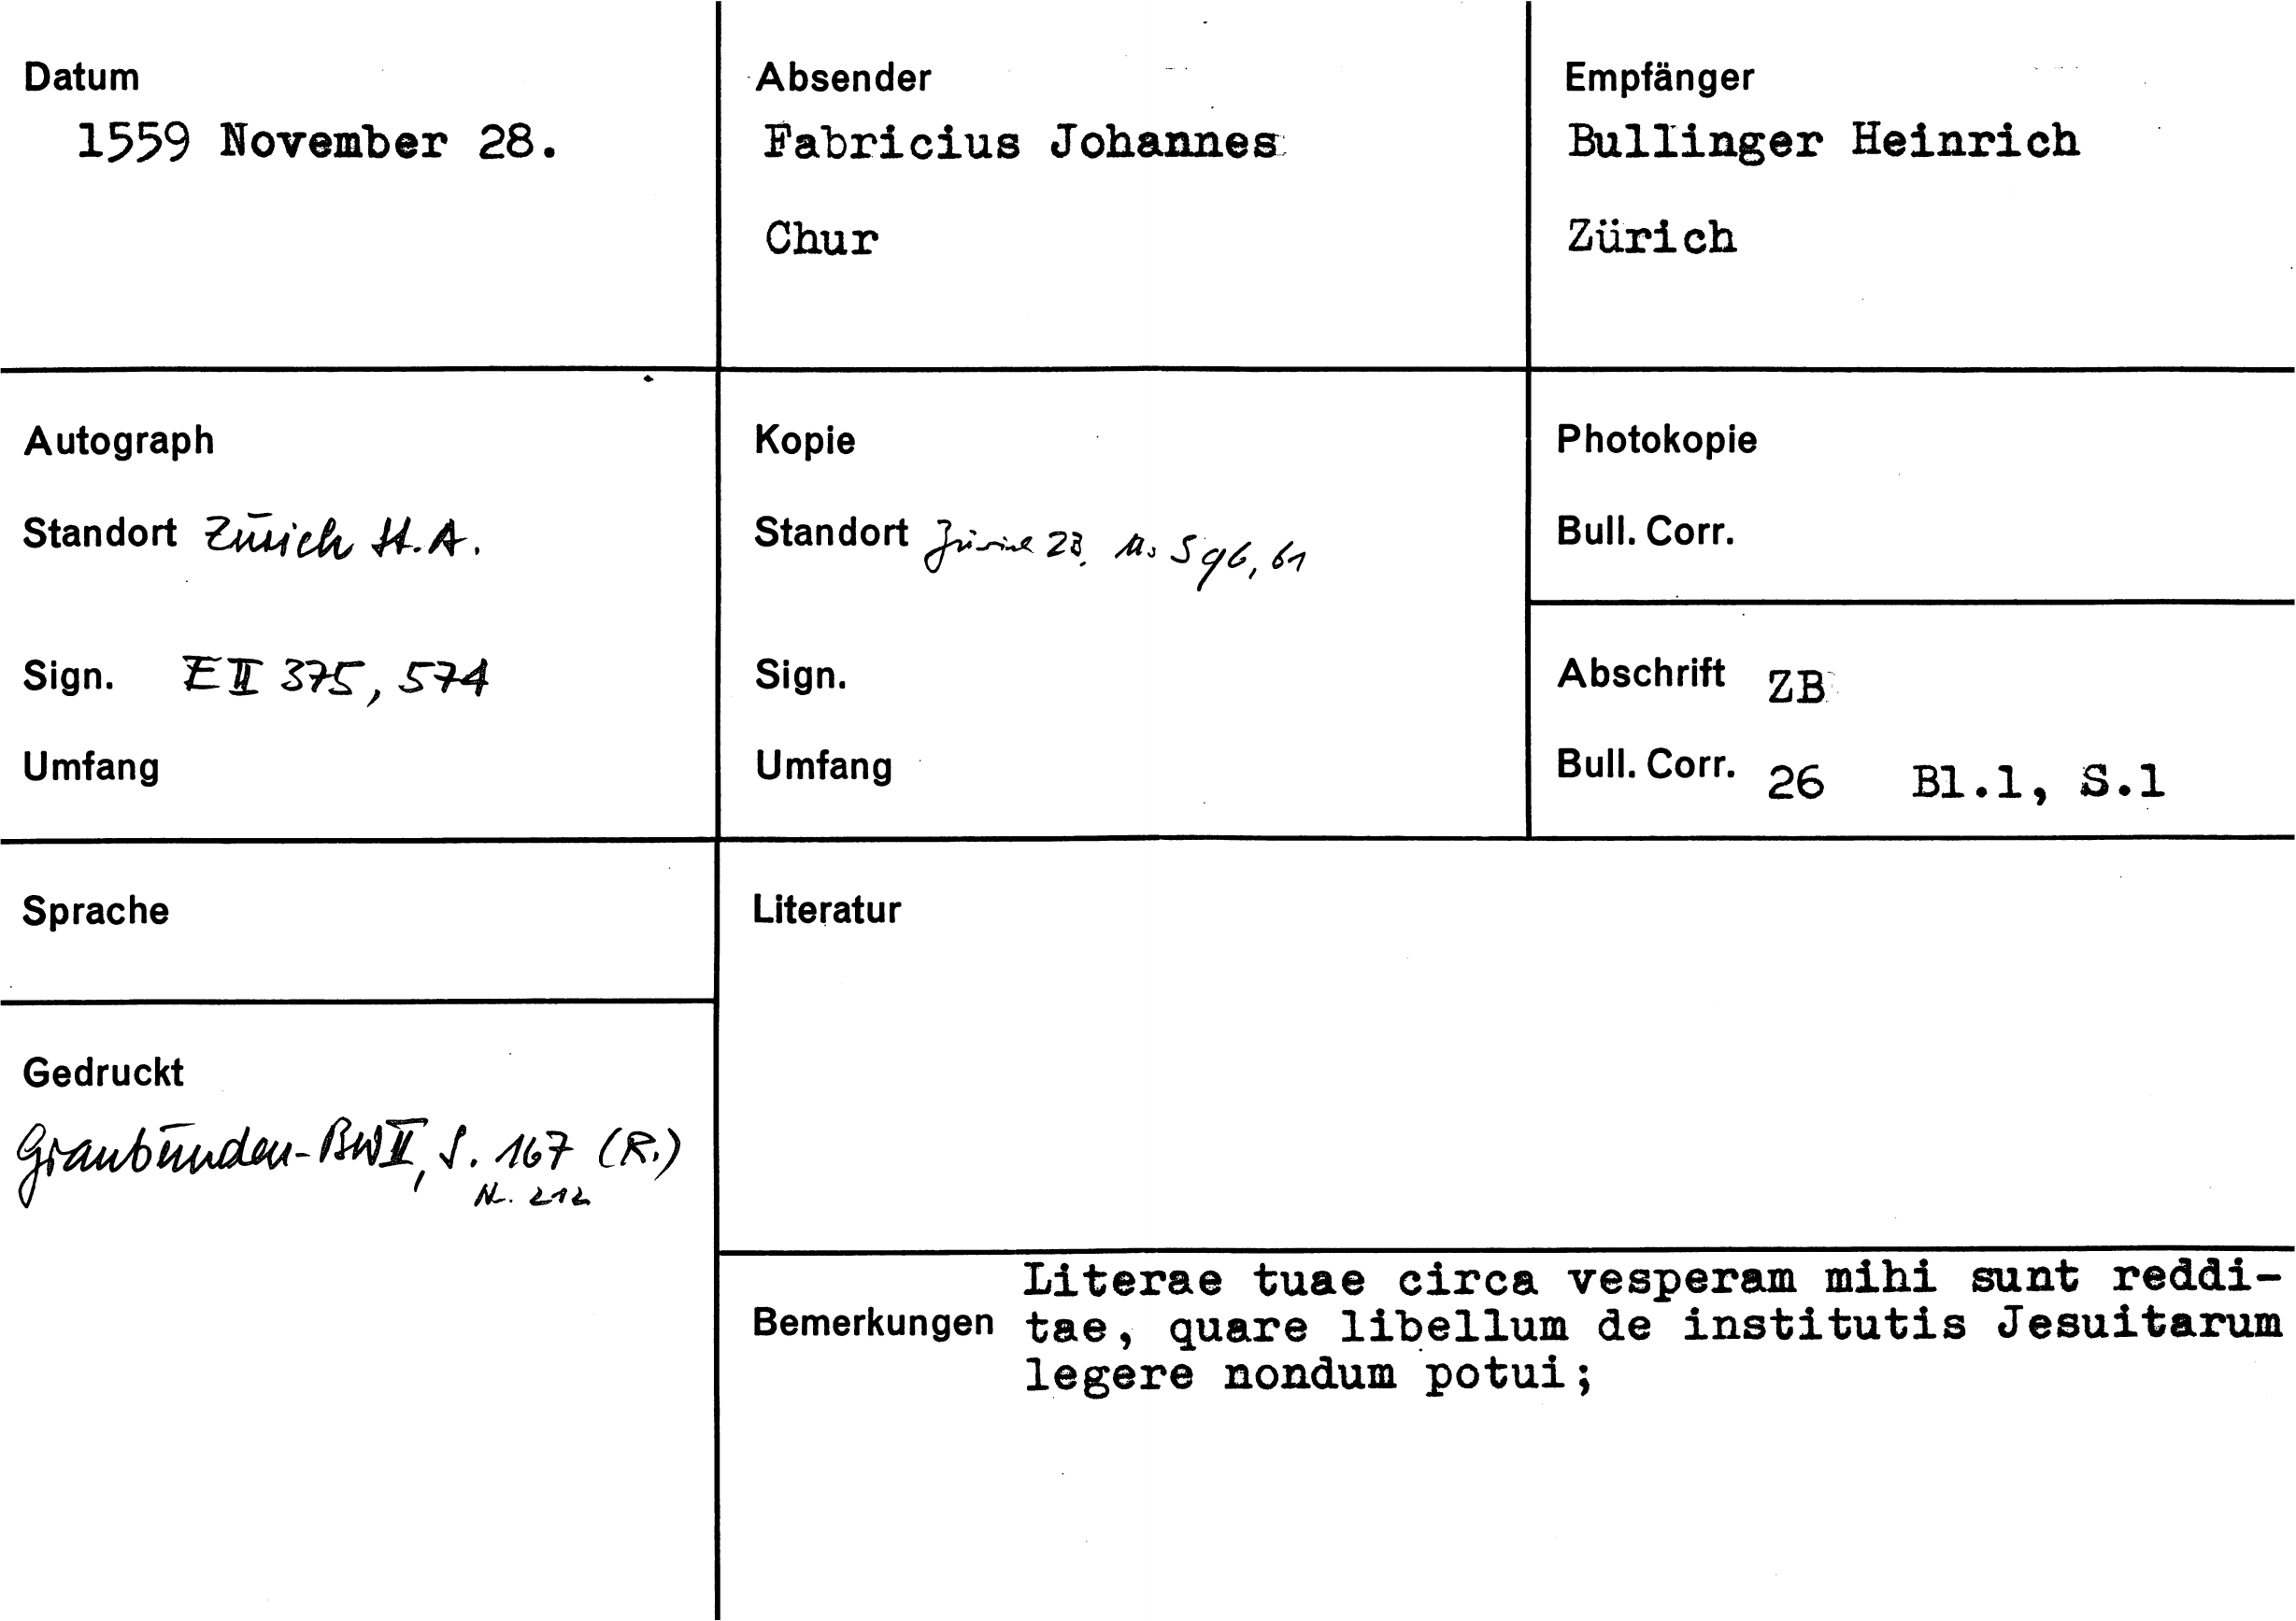 Datum
1559 November 28.
Absender
Fabricius Johannes
Chur
Empfänger
Bullinger Heinrich
Zürich
Autograph
Standort Zürich St.A.
Sign. E II 375, 574
Umfang
Kopie
Standort Zürich ZB, Ms S 96, 61
Sign.
Umfang
Photokopie
Bull. Corr.
Abschrift ZB
Bull. Corr. 26 Bl.1, S.1
Sprache
Literatur
Gedruckt
Graubünden-BW II, S. 167 (R.)
Nr. 212
Bemerkungen
Literae tuae circa vesperam mihi sunt reddi-
tae, quare libellum de institutis Jesuitarum
legere nondum potui;